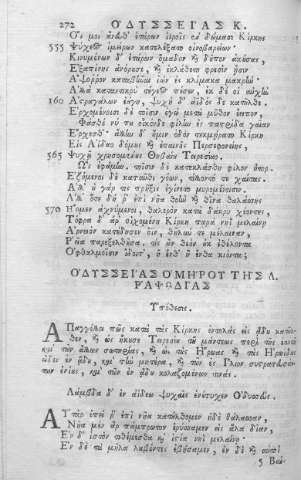 272 ΟΔΥΣΣΕΙΑΣ Κ.
Ὅς μοι ἄνευθ' ἑτάρων ἱεροῖς ἐν δώμασι Κίρκης
555 Ψύχεος ἱμείρων κατελέξατο οἰνοβαρείων.
Κινυμένων δ' ἑτάρων ὅμαδον καὶ δοῦπον ἀκούσας,
Ἐξαπίνης ἀνόρουσε, καὶ ἐκλάθετο φρεσὶν ᾗσιν
Ἄψορρον καταβῆναι ἰὼν ἐς κλίμακα μακρήν·
Ἀλλὰ καταντικρὺ τέγεος πέσεν, ἐκ δέ οἱ αὐχὴν
160 Ἀστραγάλων ἐάγη, ψυχὴ δ' ἄϊδός δε κατῆλθε.
Ἐρχομένοισι δὲ τοῖσιν ἐγὼ μετὰ μῦθον ἔειπον·
Φάσθέ νύ που οἶκόνδε φίλην ἐς πατρίδα γαῖαν
Ἔρχεσθ'· ἄλλην δ' ἧμιν ὁδὸν τεκμήρατο Κίρκη
Εἰς Ἀΐδαο δόμους καὶ ἐπαινῆς Περσεφονείης,
565 Ψυχῇ χρησομένους Θηβαίου Τειρεσίαο.
Ὣς ἐφάμην. τοῖσιν δὲ κατεκλάσθη φίλον ἦτορ.
Ἑζόμενοι δὲ κατ' αὖθι γόων, τίλλοντό τε χαίτας.
Ἀλλ' οὐ γάρ τις πρῆξις ἐγίνετο μυρομένοισιν.
Ἀλλ' ὅτε δή ῥ' ἐπὶ νῆα θοὴν καὶ θῖνα θαλάσσης
570 Ἤομεν ἀχνύμενοι, θαλερὸν κατὰ δάκρυ χέοντες,
Τόφρα δ' ἄρ' οἰχομένη Κίρκη παρὰ νηῒ μελαίνῃ
Ἀρνειὸν κατέδησεν ὄϊν, θῆλύν τε μέλαιναν,
Ῥεῖα παρεξελθοῦσα. τίς ἂν θεὸν οὐκ ἐθέλοντα
Ὀφθαλμοῖσιν ἴδοιτ', ἢ ἔνθ' ἢ ἔνθα κιόντα;
ΟΔΥΣΣΕΙΑΣ ΟΜΗΡΟΥ ΤΗΣ Λ.
ΡΑΨΩΔΙΑΣ
Ὑπόθεσις.
Ἀπαγγέλλει πῶς κατὰ τὰς Κίρκης ἐντολὰς εἰς ᾅδου κατῆλ-
θεν, καὶ ὡς ἤκουσε Τειρεσίου τοῦ μάντεως περὶ τῆς
καὶ τῶν ἄλλων σωτηρίας, καὶ ὡς τοὺς Ἥρωας καὶ τὰς Ἡρωΐδας
εἶδεν ἐν ᾅδου, καὶ τὴν μητέρα, καὶ τῶν ἐν Ἰλίῳ συστρατευσάν-
των ἐνίους, καὶ τῶν ἐν ᾅδου κολαζομένων τινάς.
Λάμβδα δ' ἐν ἀΐδεω ψυχαῖς ἐνέτυχεν Ὀδυσσεύς.
Αὐτὰρ ἐπεί ῥ' ἐπὶ νῆα κατήλθομεν ἠδὲ θάλασσαν,
Νῆα μὲν ἂρ πάμπρωτον ἐρύσσαμεν εἰς ἅλα δῖαν,
Ἐν δ' ἱστὸν τιθέμεσθα καὶ ἱστία νηῒ μελαίνῃ·
Ἐν δὲ τὰ μῆλα λαβόντες ἐβήσαμεν, ἐν δὲ καὶ αὐτοὶ
5 Βαί-